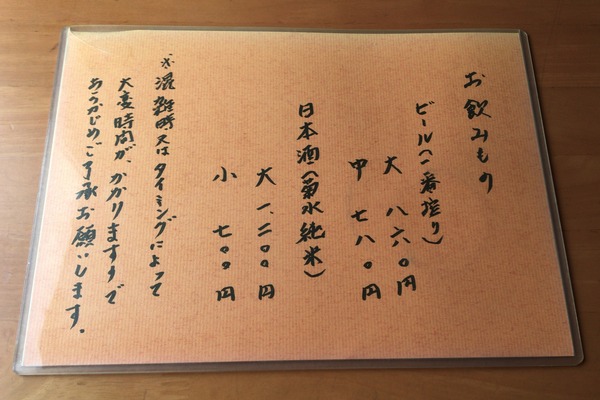 お飲みもの
ビール(一番搾り)
大 八六〇円
中 七八〇円
日本酒(菊水純米)
大 一、二〇〇円
小 七〇〇円
※混雑時又はタイミングによって
大変時間が、かかりますうで
あらかじめご了承お願いします。